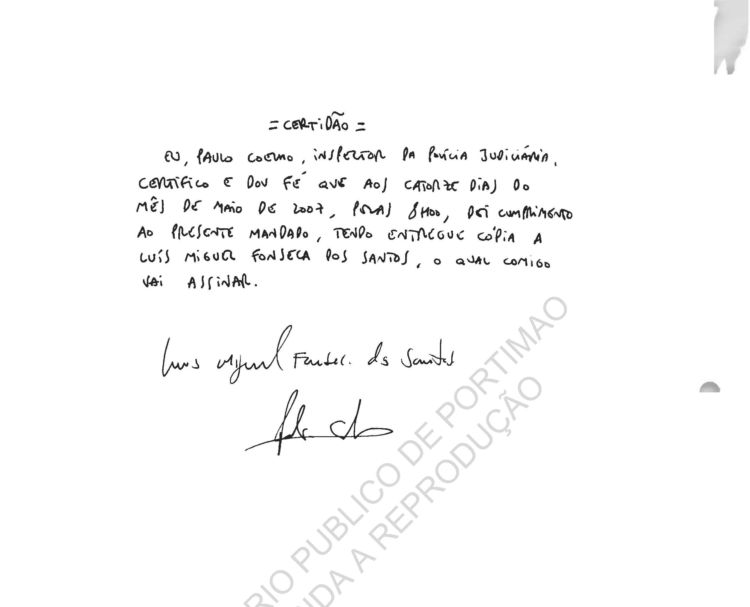 = CERTIDÃO =
EU, PAULO COELHO, INSPECTOR DA POLÍCIA JUDICIÁRIA,
CERTIFICO E DOU FÉ QUE AOS CATORZE DIAS DO
MÊS DE MAIO DE 2007, PELAS 8H00, DEI CUMPRIMENTO
AO PRESENTE MANDADO, TENDO ENTREGUE CÓPIA A
LUÍS MIGUEL FONSECA DOS SANTOS, O QUAL COMIGO
VAI ASSINAR.
Luís Miguel Fonsec. ds Santos
RIO PUBLICO DE PORTIMAO
IDA A REPRODUÇÃO